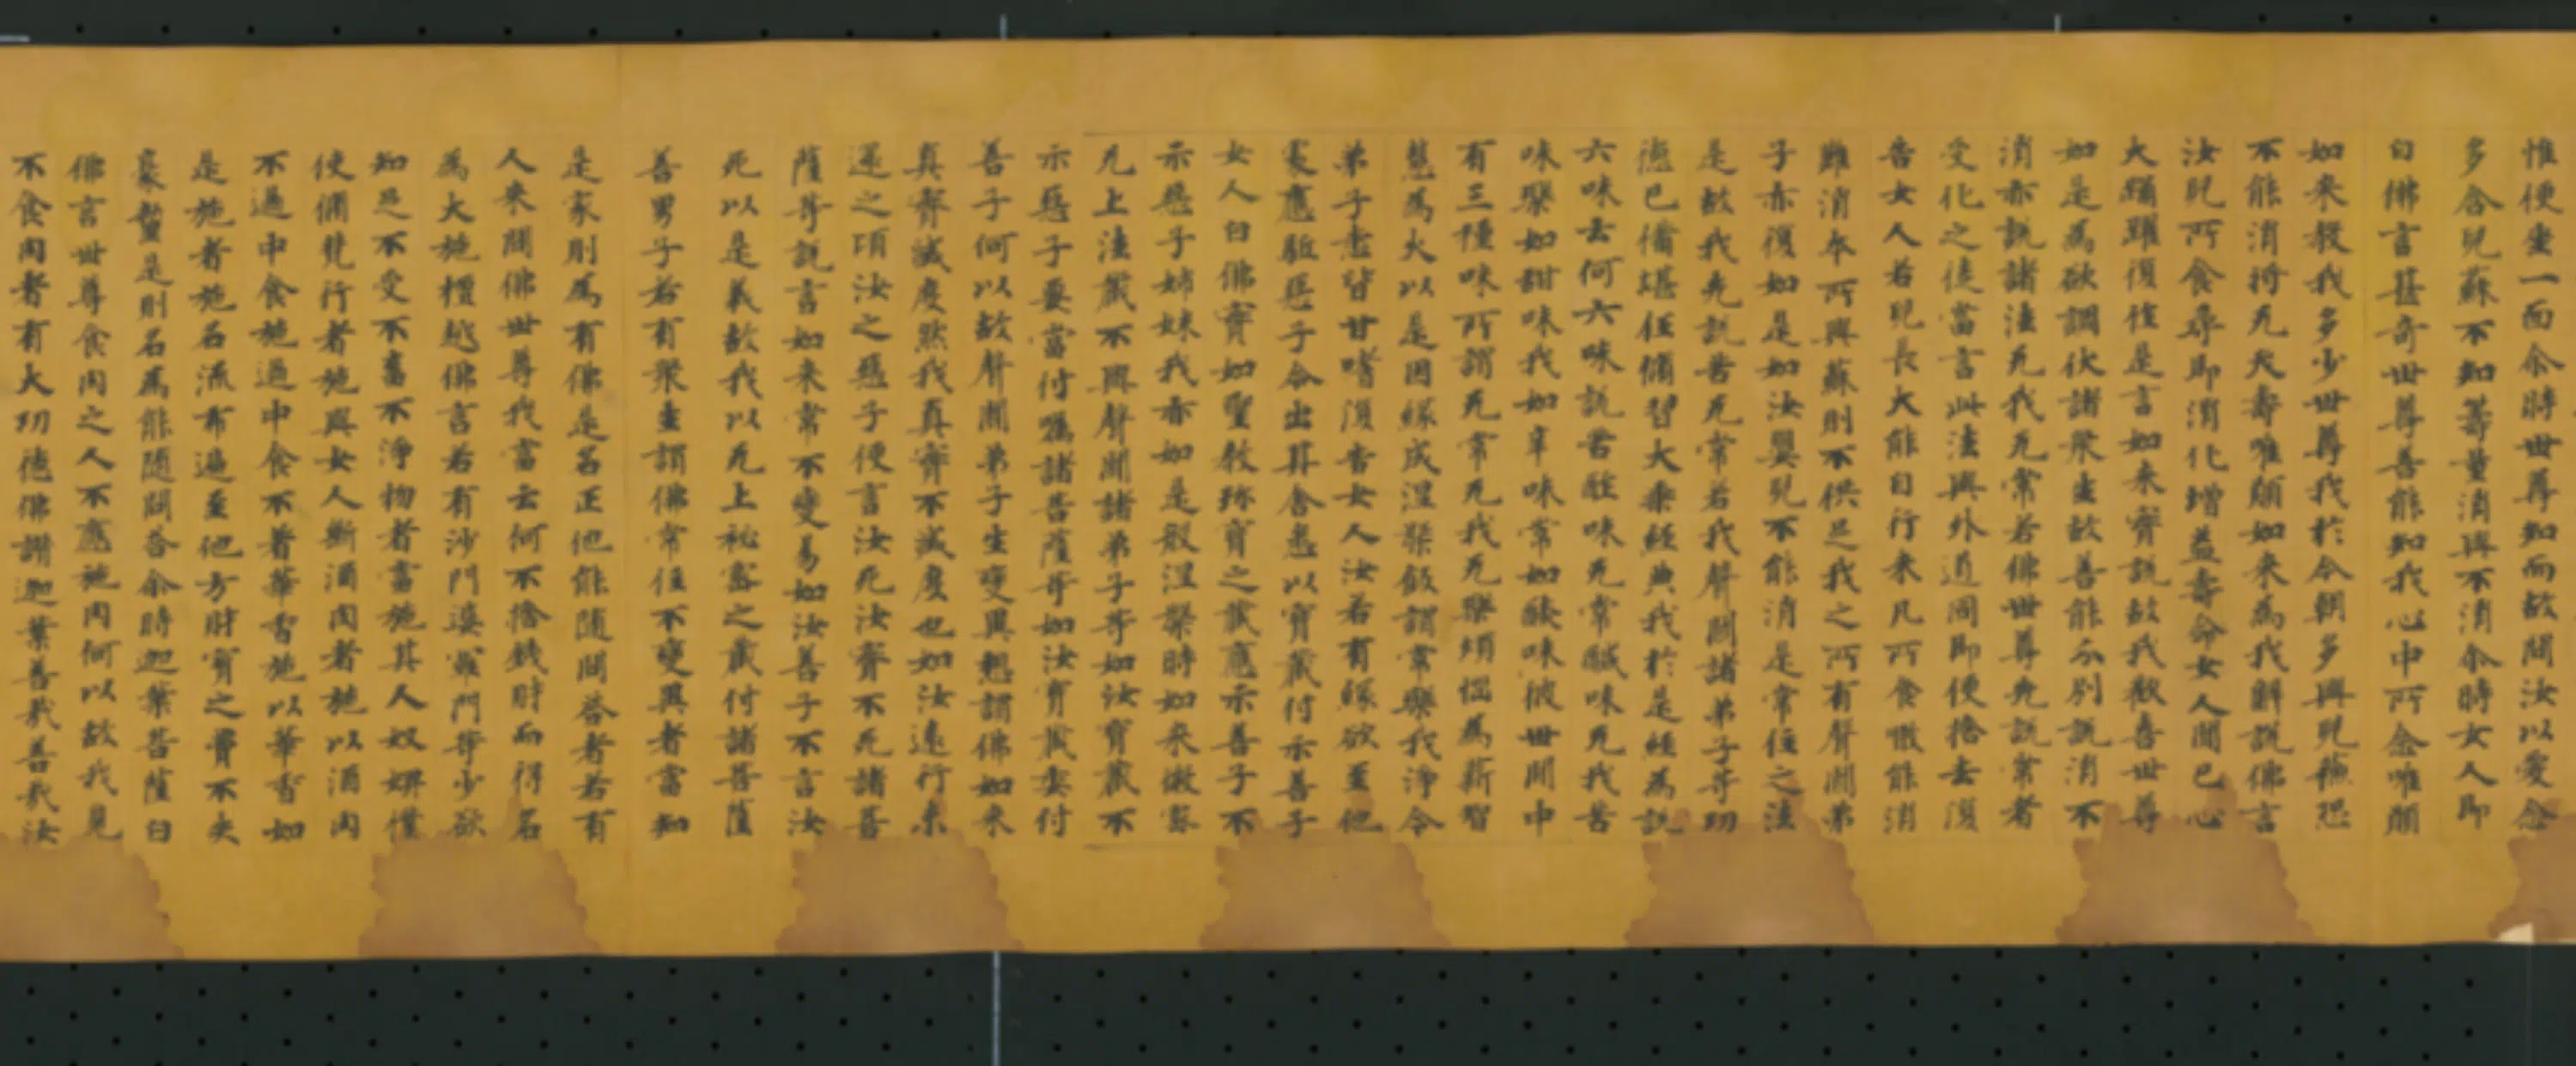 惟便坐一面尒時世尊知而故問汝以愛念
多含兒蘇不知籌量消與不消尒時女人即
白佛言甚奇世尊善能知我心中所念唯願
如来教我多少世尊我於今朝多與兒蘇恐
不能消將无夭壽唯願如来為我解說佛言
汝兒所食尋即消化增益壽命女人聞已心
大踊躍復作是言如来實說故我歡喜世尊
如是為欲調伏諸衆生故善能分別說消不
消亦說諸法无我无常若佛世尊先說常者
受化之徒當言此法與外道同即便捨去復
告女人若兒長大能自行来凡所食噉能消
難消本所與蘇則不供足我之所有聲聞弟
子亦復如是如汝嬰兒不能消是常住之法
是故我先說苦无常若我聲聞諸弟子等功
德已備堪任脩習大乘經典我於是經為說
六味云何六味說苦酢味无常醎味无我苦
味樂如甜味我如辛味常如醎味彼世間中
有三種味所謂无常无我无樂煩惱為薪智
慧為火以是因緣成涅槃飯謂常樂我淨令
弟子悉皆甘嗜復告女人汝若有緣欲至他
處應駈惡子令出其舍悉以寶藏付示善子
女人白佛實如聖教珎寶之藏應示善子不
示惡子姊妹我亦如是般涅槃時如来微密
无上法藏不與聲聞諸弟子等如汝寶藏不
示惡子要當付囑諸菩薩等如汝寶藏委付
善子何以故聲聞弟子生變異想謂佛如来
真實滅度然我真實不滅度也如汝遠行未
還之頃汝之惡子便言汝死汝實不死諸菩
薩等說言如来常不變易如汝善子不言汝
死以是義故我以无上秘密之藏付諸菩薩
善男子若有衆生謂佛常住不變異者當知
是家則為有佛是名正他能隨問荅者若有
人来問佛世尊我當云何不捨錢財而得名
為大施檀越佛言若有沙門婆羅門等少欲
知足不受不畜不淨物者當施其人奴婢僕
使脩梵行者施與女人斷酒肉者施以酒肉
不過中食施過中食不著華香施以華香如
是施者施名流布遍至他方財寶之費不失
毫釐是則名為能隨問荅尒時迦葉菩薩白
佛言世尊食肉之人不應施肉何以故我見
不食肉者有大功德佛讚迦葉善哉善哉汝